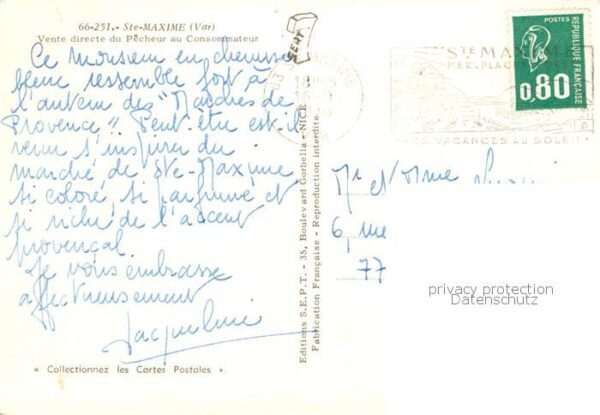 66-251.- Ste-MAXIME (Var)
Vente directe du Pêcheur au Consommateur
Ce monsieur en chemise
bleue ressemble fort à
l'auteur des "Marchés de
Provence". Peut-être est-il
venu s'inspirer du
marché de Ste-Maxime
si coloré, si parfumé et
si riche de l'accent
provençal.
Je vous embrasse
affectueusement
Jacqueline
« Collectionnez les Cartes Postales ».
SEPT
Editions S.E.P.T. - 35, Boulevard Gorbella - NICE
Fabrication Française - Reproduction interdite.
STE MAXIME
VACANCES AU SOLEIL
POSTES
0,80
REPUBLIQUE FRANÇAISE
Mr et Mme
6, rue
77
privacy protection
Datenschutz